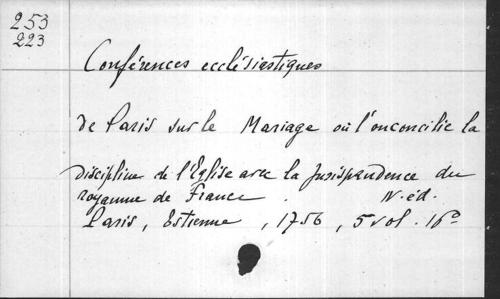 253
223
Conférences ecclésiastiques
de Paris sur le Mariage où l'on concilie la
discipline de l'Eglise avec la Jurisprudence du
royaume de France . N. éd.
Paris, Estienne, 1756, 5 vol. 16°